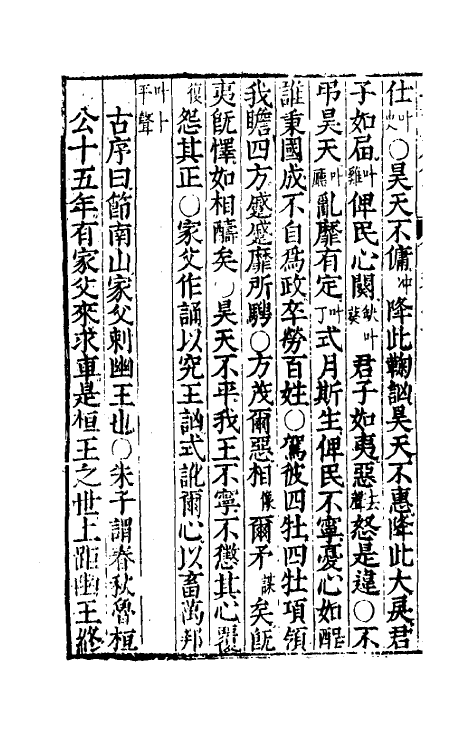 仕叶史○昊天不傭冲降此鞠訩昊天不惠降此大戾君
子如屆叶雞俾民心闋缺叶葵君子如夷惡去聲怒是違○不
弔昊天叶廳亂靡有定叶丁式月斯生俾民不寧憂心如酲
誰秉國成不自爲政卒勞百姓○駕彼四牡四牡項領
我瞻四方蹙蹙靡所騁○方茂爾惡相像爾矛謀矣旣
夷旣懌如相醻矣○昊天不平我王不寧不懲其心覆
復怨其正○家父作誦以究王訩式訛爾心以畜萬邦
叶卜平聲
古序曰節南山家父刺幽王也○朱子謂春秋魯桓
公十五年有家父來求車是桓王之世上距幽王終